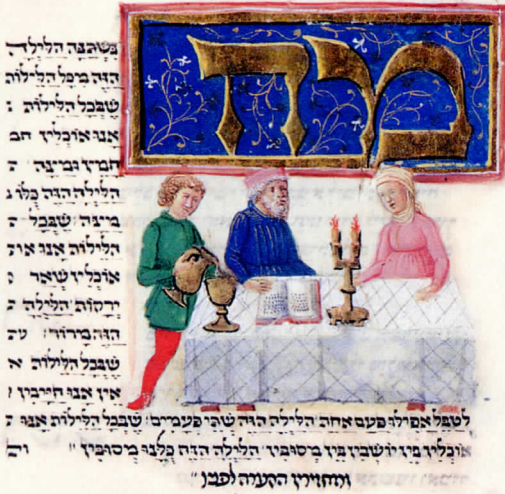 מה
נשתנה הלילה
הזה מכל הלילות
שבכל הלילות
אנו אוכלין חמ
חמץ ומצה ה
הלילה הזה כלו
מצה שבכל ה
הלילות אנו או
אוכלין שאר
ירקות הלילה ה
הזה מרור
שבכל הלילות א
אין אנו חייבין
לטבל אפילו פעם אחת הלילה הזה שתי פעמים שבכל הלילות אנו
אוכלין בין יושבין בין מסובין הלילה הזה כלנו מסובין
ומחזירין הקערה לפניו